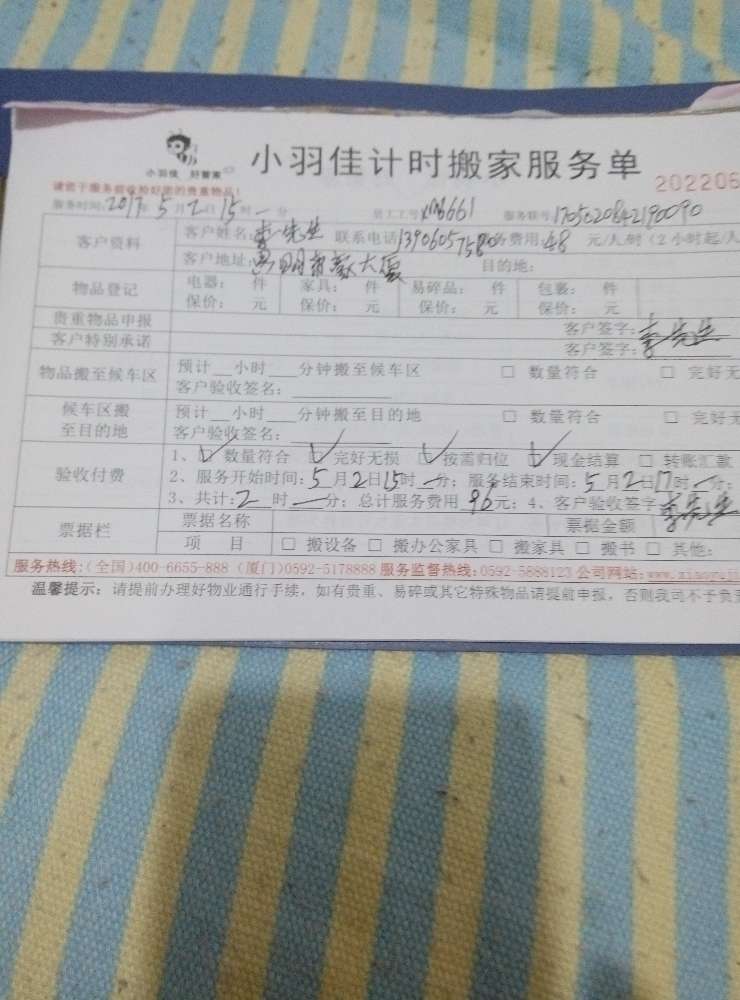 小羽佳 好管家
小羽佳计时搬家服务单
202206
请您于服务前收拾好您的贵重物品！
服务时间：2017年5月2日15时一分 员工工号：XM6661 服务联号：1705020842190090
客户资料 客户姓名：李先生 联系电话：1396057580 务费用：48元/人/时（2小时起/人
客户地址： 大厦 目的地：
物品登记 电器： 件 家具： 件 易碎品： 件 包裹： 件
保价： 元 保价： 元 保价： 元 保价： 元
贵重物品申报 客户签字：李先生
客户特别承诺 客户签字：
物品搬至候车区 预计__小时__分钟搬至候车区 □ 数量符合 □ 完好无
客户验收签名：
候车区搬至目的地 预计__小时__分钟搬至目的地 □ 数量符合 □ 完好无
客户验收签名：
验收付费 1、☑ 数量符合 ☑ 完好无损 ☑ 按需归位 ☑ 现金结算 □ 转账汇款
2、服务开始时间：5月2日15时一分；服务结束时间：5月2日17时一分；
3、共计：2时一分；总计服务费用96元；4、客户验收签字李先生
票据栏 票据名称 票据金额
项 目 □ 搬设备 □ 搬办公家具 □ 搬家具 □ 搬书 □ 其他：
服务热线：(全国)400-6655-888 (厦门)0592-5178888 服务监督热线：0592-5888123 公司网站：www.xiaoyuji
温馨提示：请提前办理好物业通行手续，如有贵重、易碎或其它特殊物品请提前申报，否则我司不予负责